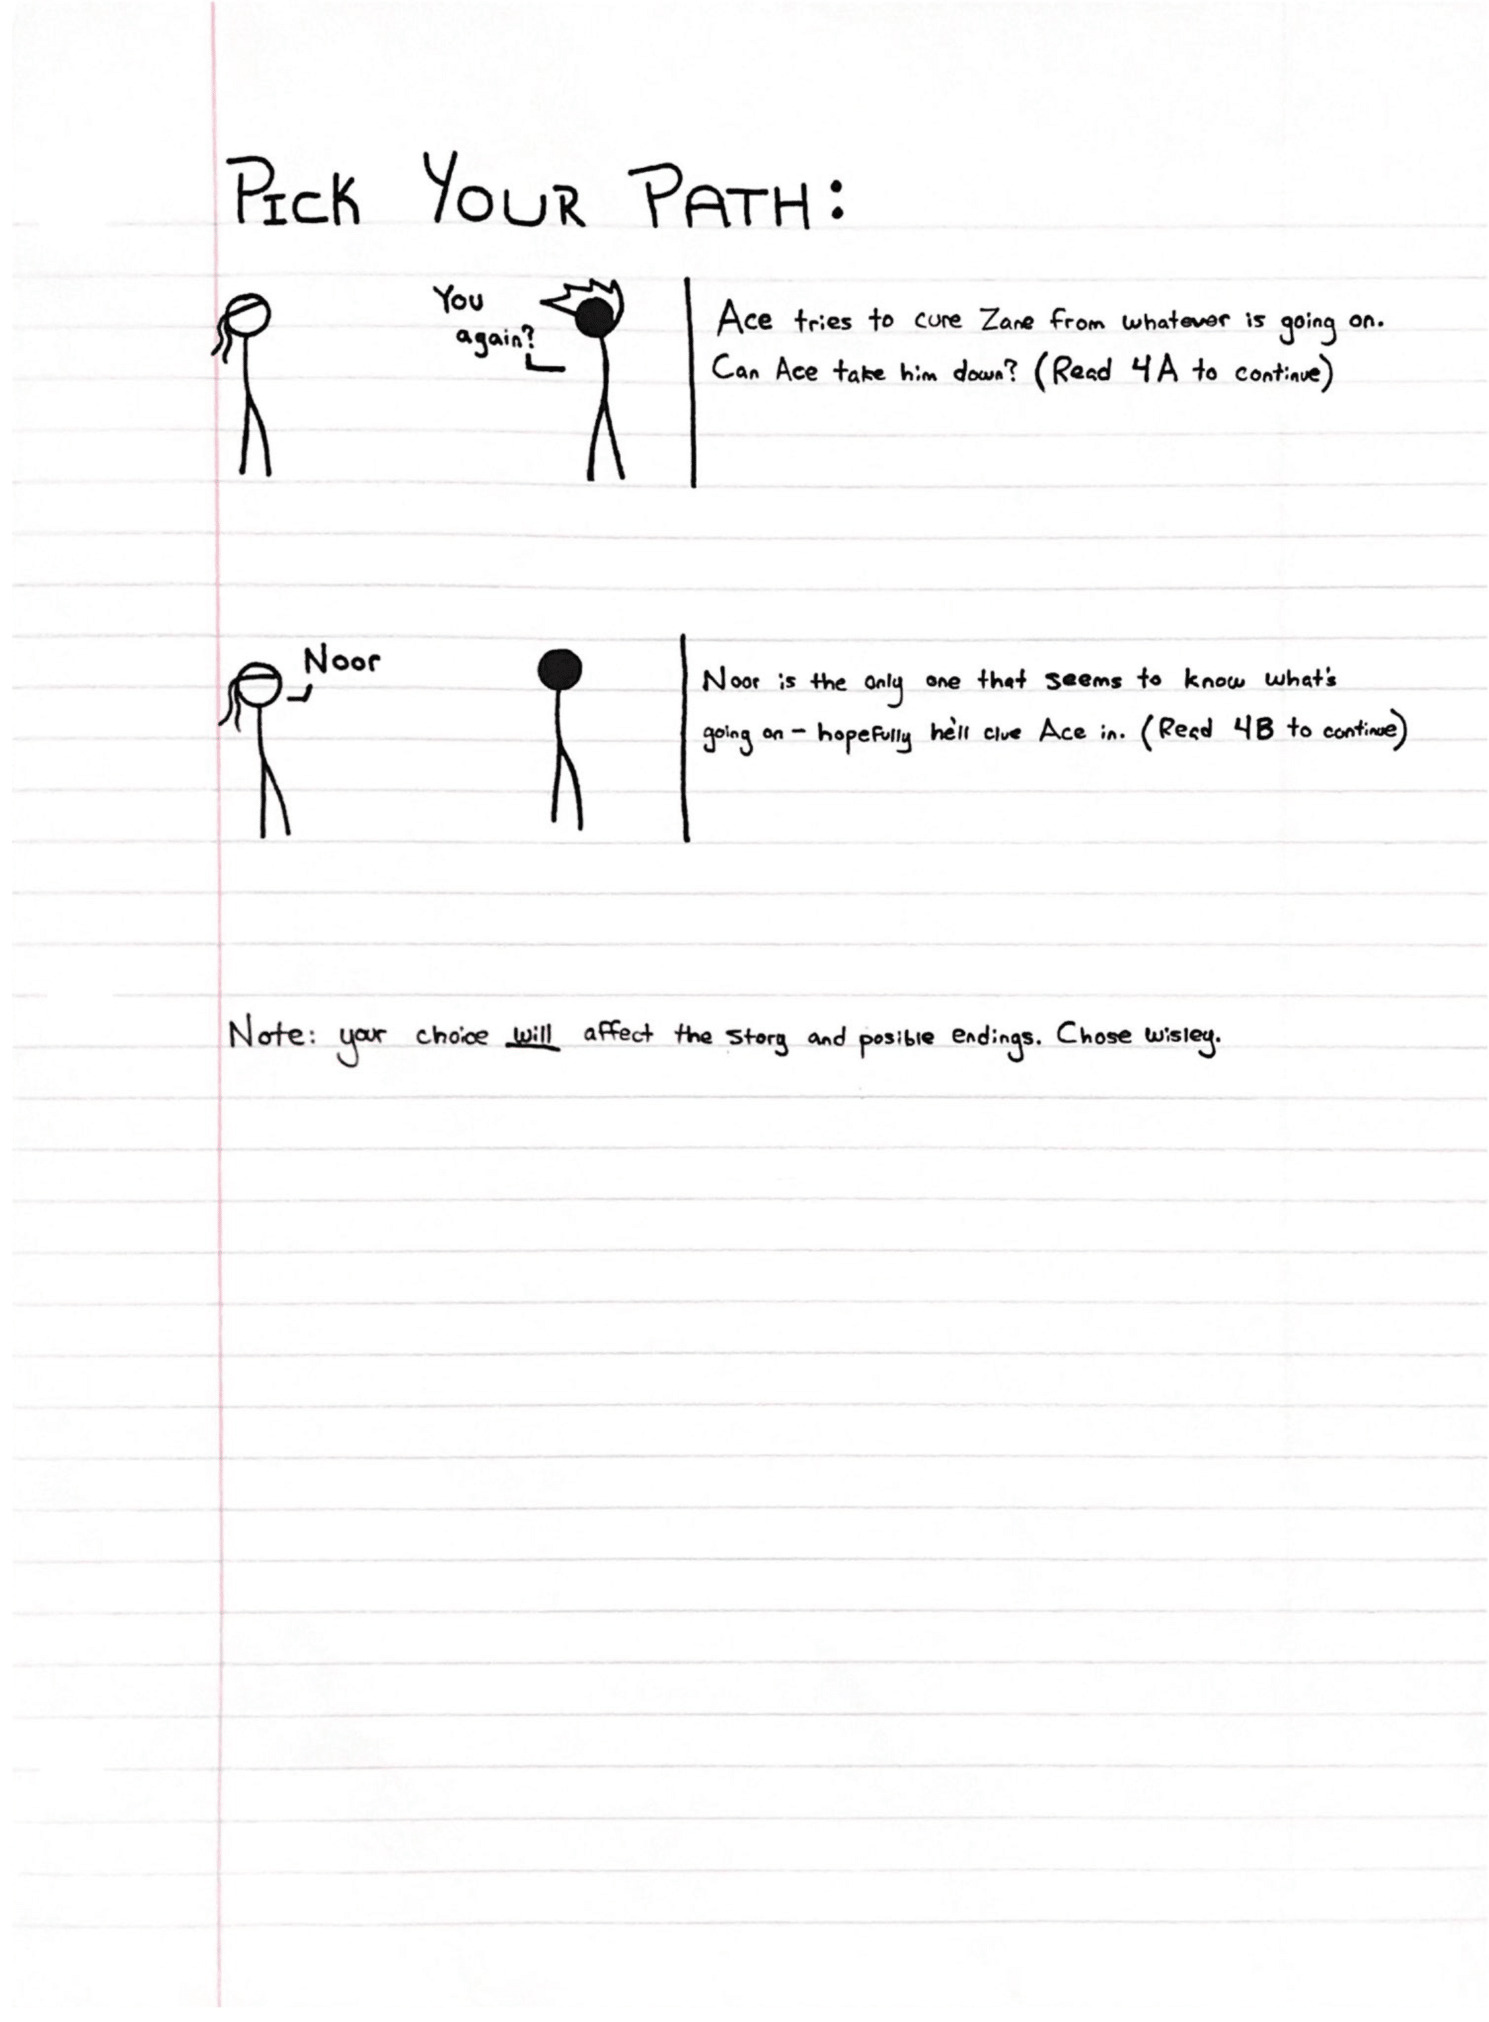 PICK YOUR PATH:
You
again?
Ace tries to cure Zane from whatever is going on.
Can Ace take him down? (Read 4A to continue)
Noor
Noor is the only one that seems to know what's
going on - hopefully he'll clue Ace in. (Read 4B to continue)
Note: your choice will affect the story and posible endings. Chose wisley.